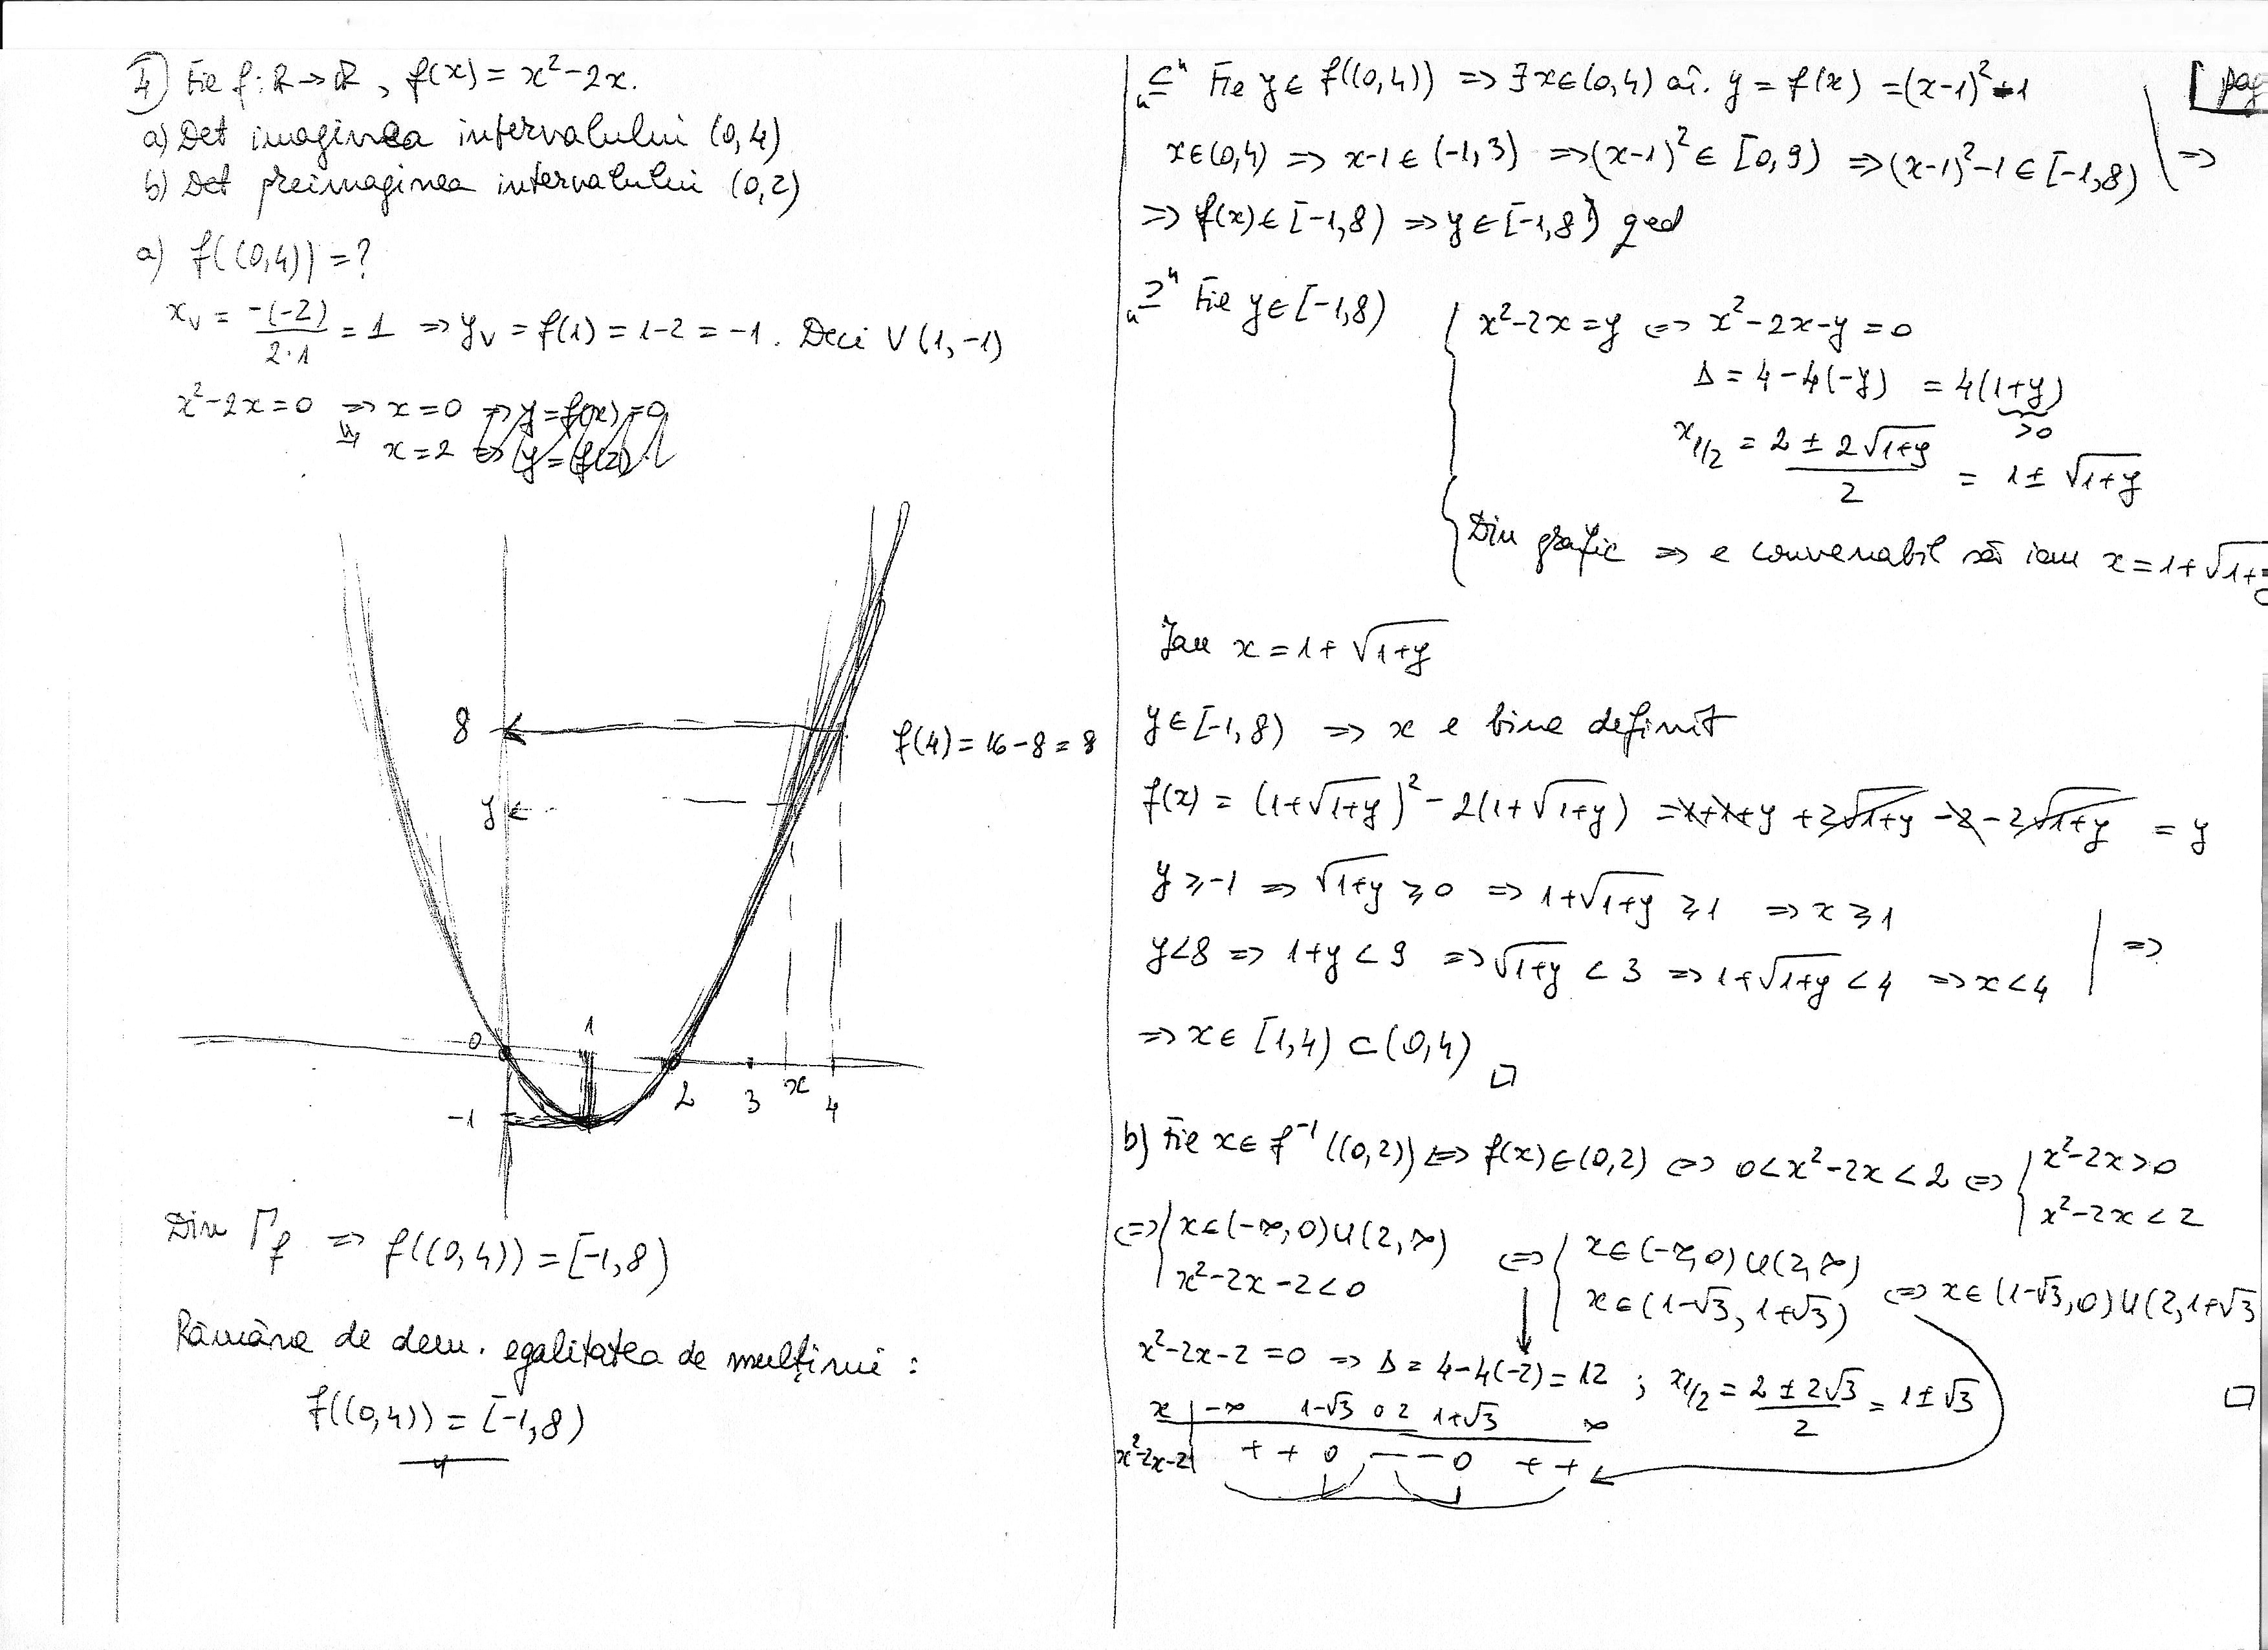 4) Fie f: R → R, f(x) = x² - 2x.
a) Det imaginea intervalului (0,4)
b) Det preimaginea intervalului (0,2)
a) f((0,4)) = ?
x_v = -(-2)/2·1 = 1 => y_v = f(1) = 1-2 = -1. Deci V(1,-1)
x²-2x=0 => x=0 => y=f(x)=0
=> x=2 => y=f(2)
8
f(4) = 16-8 = 8
y
0 1 2 3 x 4
-1
Din Γf => f((0,4)) = [-1,8)
Rămâne de dem. egalitatea de mulțimi:
f((0,4)) = [-1,8)
"⊆" Fie y ∈ f((0,4)) => ∃ x∈(0,4) aî. y = f(x) = (x-1)²-1
x∈(0,4) => x-1 ∈ (-1,3) => (x-1)² ∈ [0,9) => (x-1)²-1 ∈ [-1,8) | =>
=> f(x) ∈ [-1,8) => y ∈ [-1,8) qed
"⊇" Fie y ∈ [-1,8)
x²-2x=y <=> x²-2x-y=0
Δ = 4-4(-y) = 4(1+y)
>0
x1/2 = 2 ± 2√1+y / 2 = 1 ± √1+y
Din grafic => e convenabil să iau x = 1+√1+y
Iau x = 1+√1+y
y ∈ [-1,8) => x e bine definit
f(x) = (1+√1+y)² - 2(1+√1+y) = 1+1+y + 2√1+y - 2 - 2√1+y = y
y ≥ -1 => √1+y ≥ 0 => 1+√1+y ≥ 1 => x ≥ 1
y<8 => 1+y < 9 => √1+y < 3 => 1+√1+y < 4 => x<4 | =>
=> x ∈ [1,4) ⊂ (0,4) □
b) Fie x ∈ f⁻¹((0,2)) <=> f(x) ∈ (0,2) <=> 0 < x²-2x < 2 <=> { x²-2x>0
x²-2x<2
<=> { x∈(-∞,0)∪(2,∞) <=> { x∈(-∞,0)∪(2,∞)
x²-2x-2<0 x∈(1-√3, 1+√3) <=> x∈(1-√3,0)∪(2,1+√3
x²-2x-2=0 => Δ = 4-4(-2) = 12 ; x1/2 = 2 ± 2√3 / 2 = 1 ± √3 □
x | -∞ 1-√3 0 2 1+√3 ∞
x²-2x-2 | + + 0 - - 0 + +